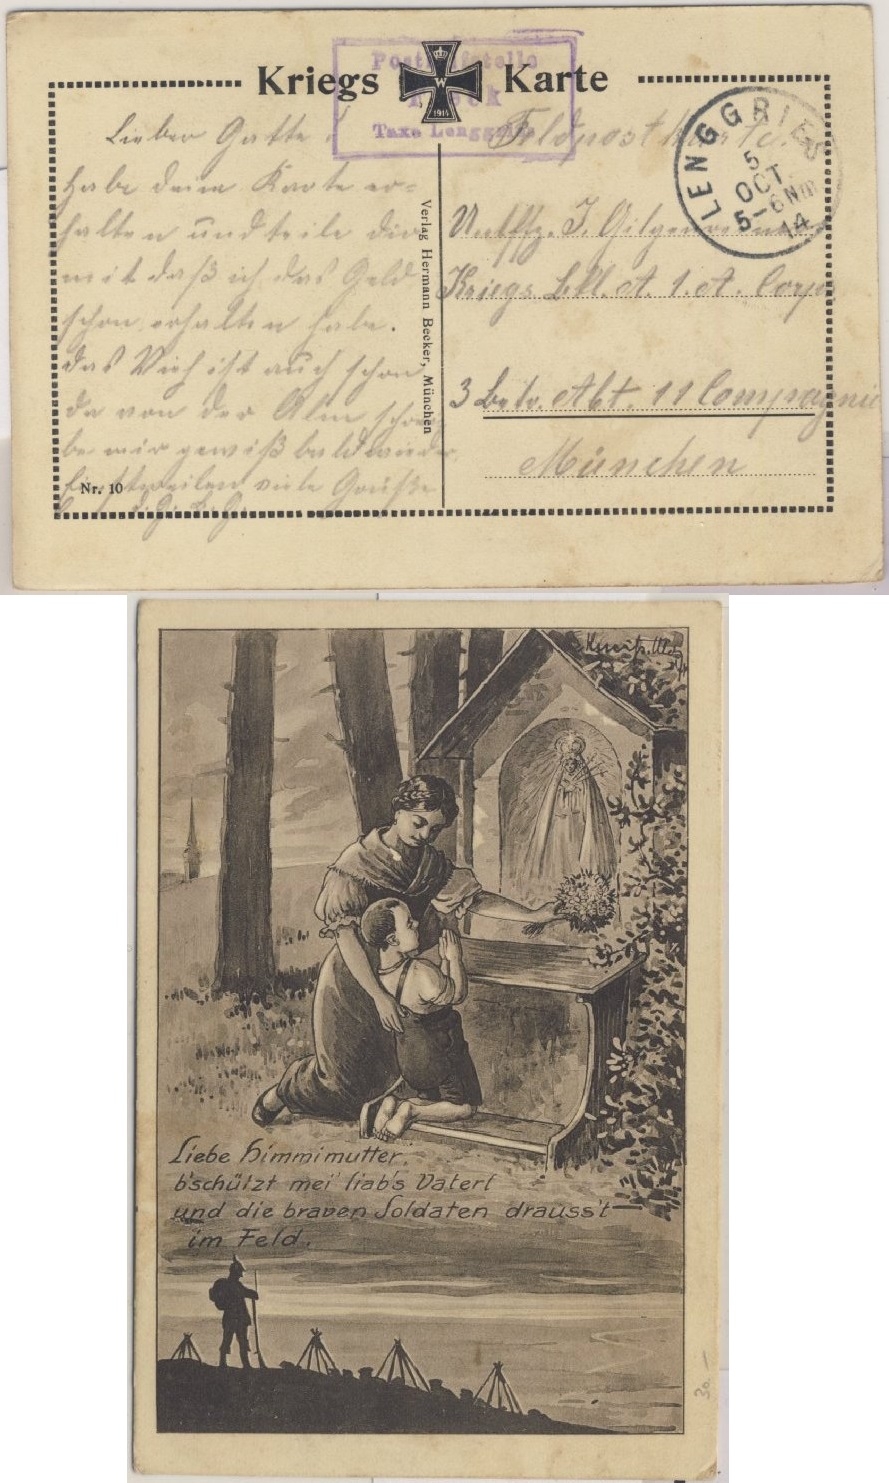 Kriegs Karte
W
1914
Posthilfstelle
Taxe Lenggries
LENGGRIES
5.
OCT.
5-6 Nm
14
Feldpostkarte.
Lieber Gatte!
Habe deine Karte er=
halten und teile dir
mit daß ich das Geld
schon erhalten habe.
das Vieh ist auch schon
da von der Alm
be mir gewiß bald wieder
Einstweilen viele Grüße
Verlag Hermann Becker, München
Nr. 10
Kriegs Bkl. A. 1. A. Corps
3 Abt. 11 Compagnie
München
Liebe Himmimutter,
b'schützt mei' liab's Vaterl
und die braven Soldaten drauss't
im Feld.
30.—